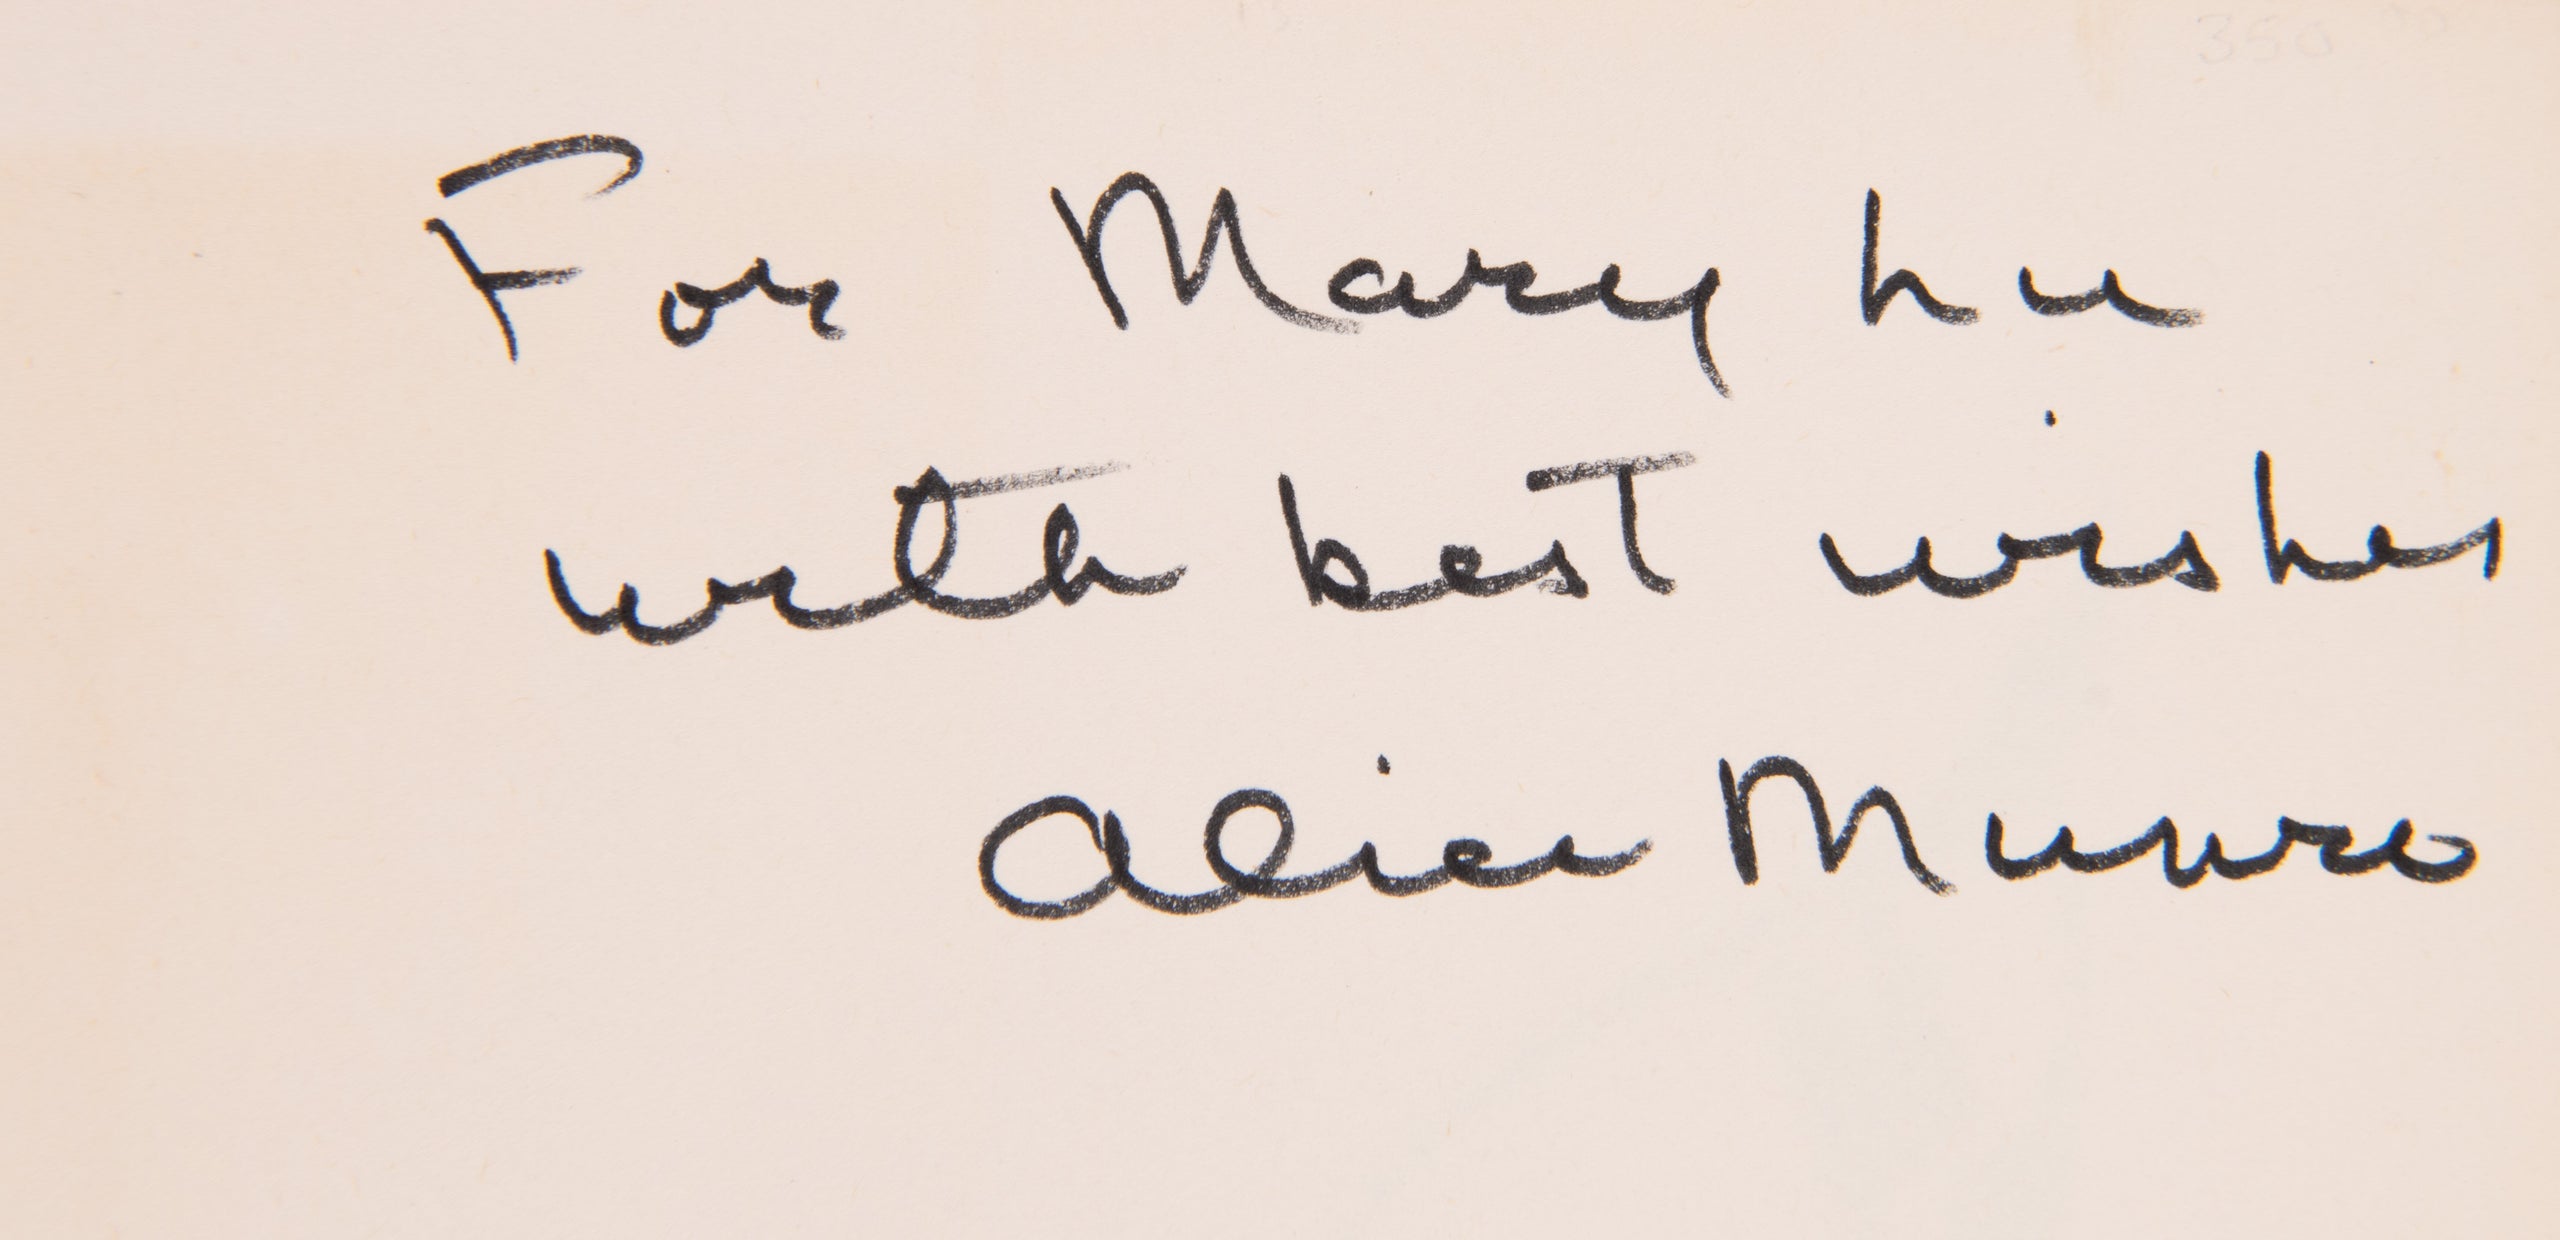 350
For Mary Lu
with best wishes
Alice Munro